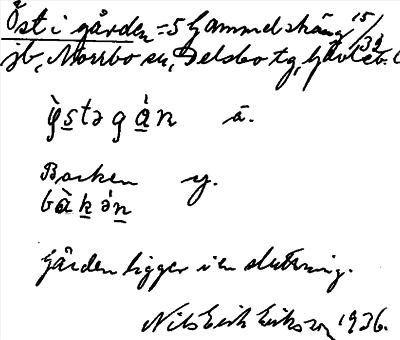 Öst i gården = 5 Gammelsträng 15/32
jb, Norrbo sn, Delsbo tg, Gävleb. l
ỳstəgá̱n ä.
Backen y.
bàkə́n
Gården ligger i en sluttning.
Nils Erik Eriksson 1936.